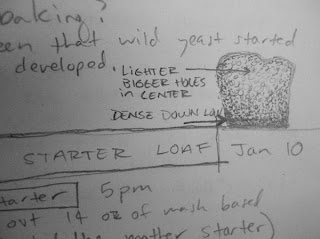 oaking?
een that wild yeast started
developed.
LIGHTER
BIGGER HOLES
in CENTER
DENSE DOWN LOW
STARTER LOAF
Jan 10
starter 5pm
out 14 oz of mash based
the matter starter)